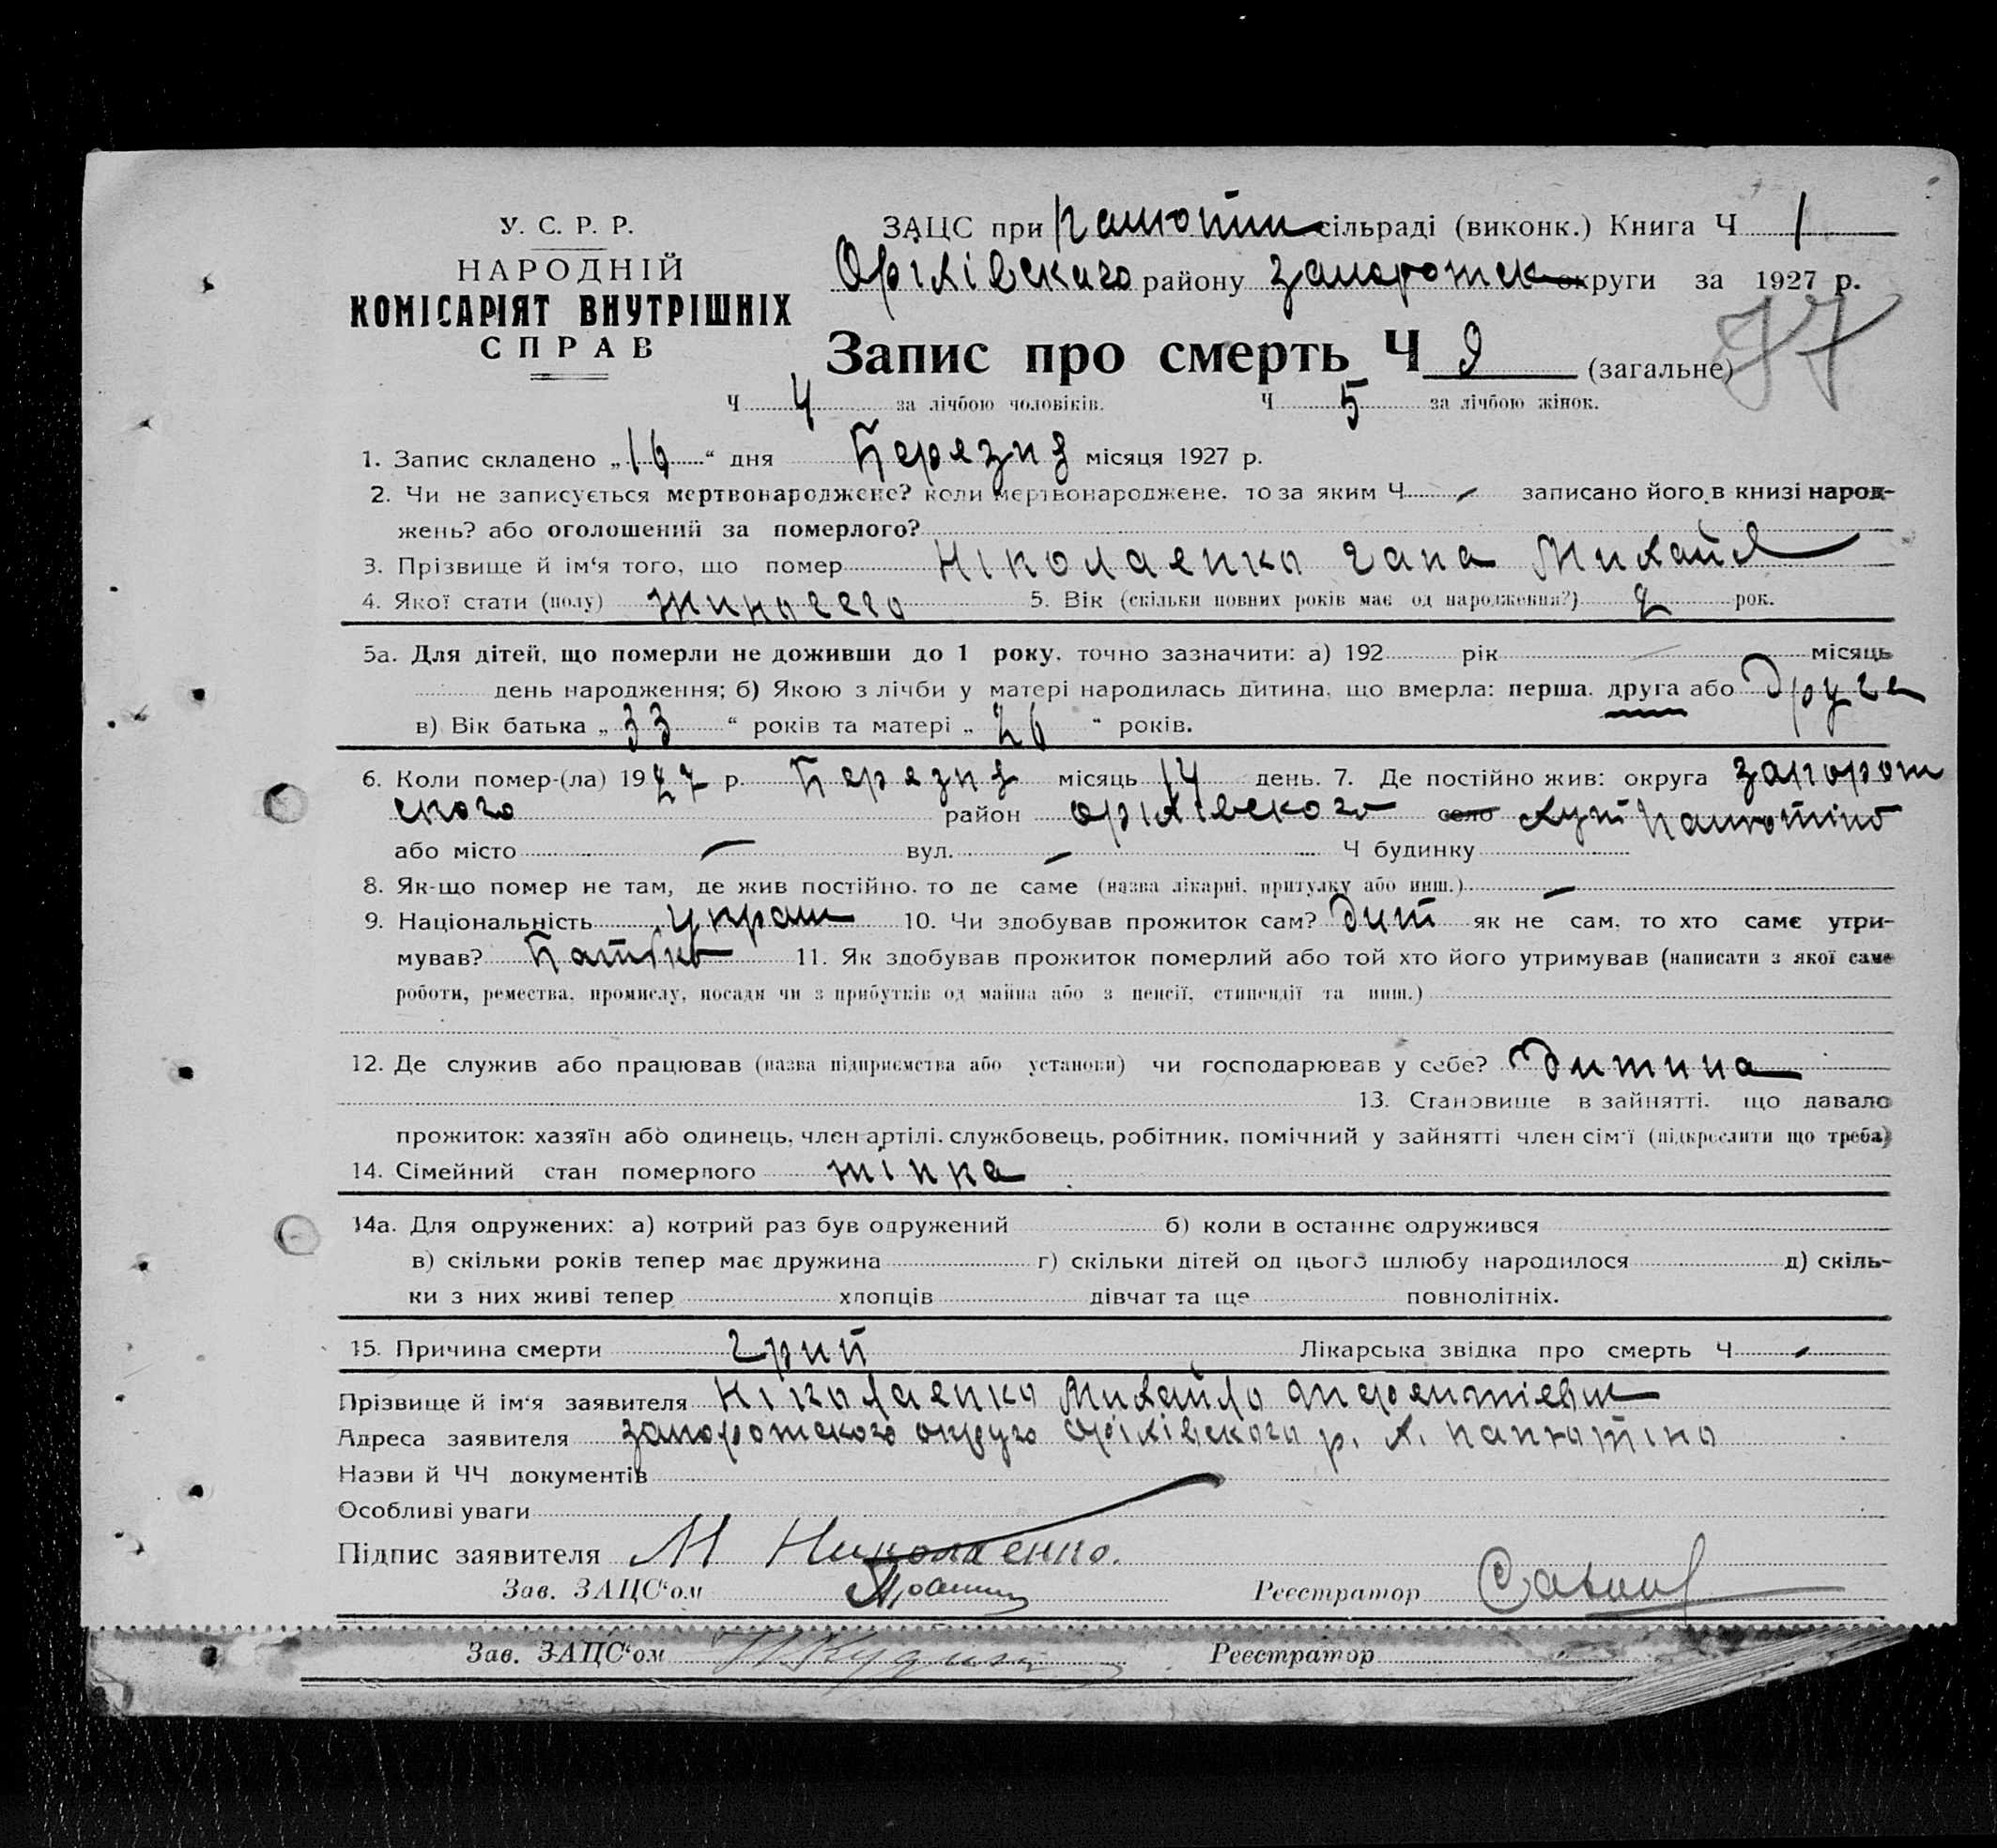 У. С. Р. Р.
НАРОДНІЙ
КОМІСАРІЯТ ВНУТРІШНІХ
СПРАВ
ЗАЦС при сільраді (виконк.) Книга Ч 1
Оріхівского району Запорожск округи за 1927 р.
Запис про смерть Ч 9 (загальне)
Ч 4 за лічбою чоловіків. Ч 5 за лічбою жінок.
1. Запис складено „16“ дня Березня місяця 1927 р.
2. Чи не записується мертвонароджене? коли мертвонароджене, то за яким Ч - записано його в книзі народ-
жень? або оголошений за померлого?
3. Прізвище й ім‘я того, що помер Ніколаенко Гана Михайл
4. Якої стати (полу) жиночего 5. Вік (скільки повних років має од народження?) 2 рок.
5а. Для дітей, що померли не доживши до 1 року, точно зазначити: а) 192 рік місяць
день народження; б) Якою з лічби у матері народилась дитина, що вмерла: перша, друга або друга
в) Вік батька „33“ років та матері „26“ років.
6. Коли помер-(ла) 1927 р. Березня місяць 14 день. 7. Де постійно жив: округа Запорож
ского район Оріхівского село хут Панютіно
або місто - вул. - Ч будинку
8. Як-що помер не там, де жив постійно, то де саме (назва лікарні, притулку або инш.) -
9. Національність Украін 10. Чи здобував прожиток сам? Дит як не сам, то хто саме утри-
мував? Батько 11. Як здобував прожиток померлий або той хто його утримував (написати з якої саме
роботи, ремества, промислу, посади чи з прибутків од майна або з пенсії, стипендії та инш.)
12. Де служив або працював (назва підприємства або установи) чи господарював у себе? Дитина
13. Становище в зайнятті, що давало
прожиток: хазяїн або одинець, член артілі, службовець, робітник, помічний у зайнятті член сім‘ї (підкреслити що треба)
14. Сімейний стан померлого жінка
14а. Для одружених: а) котрий раз був одружений б) коли в останнє одружився
в) скільки років тепер має дружина г) скільки дітей од цього шлюбу народилося д) скіль-
ки з них живі тепер хлопців дівчат та ще повнолітніх.
15. Причина смерти грип Лікарська звідка про смерть Ч -
Прізвище й ім‘я заявителя Ніколаенко Михайло
Адреса заявителя Запорожского округо Оріхівского р. х. Панютіно
Назви й ЧЧ документів
Особливі уваги
Підпис заявителя М Николаенко.
Зав. ЗАЦС‘ом Реєстратор
Зав. ЗАЦС‘ом Реєстратор